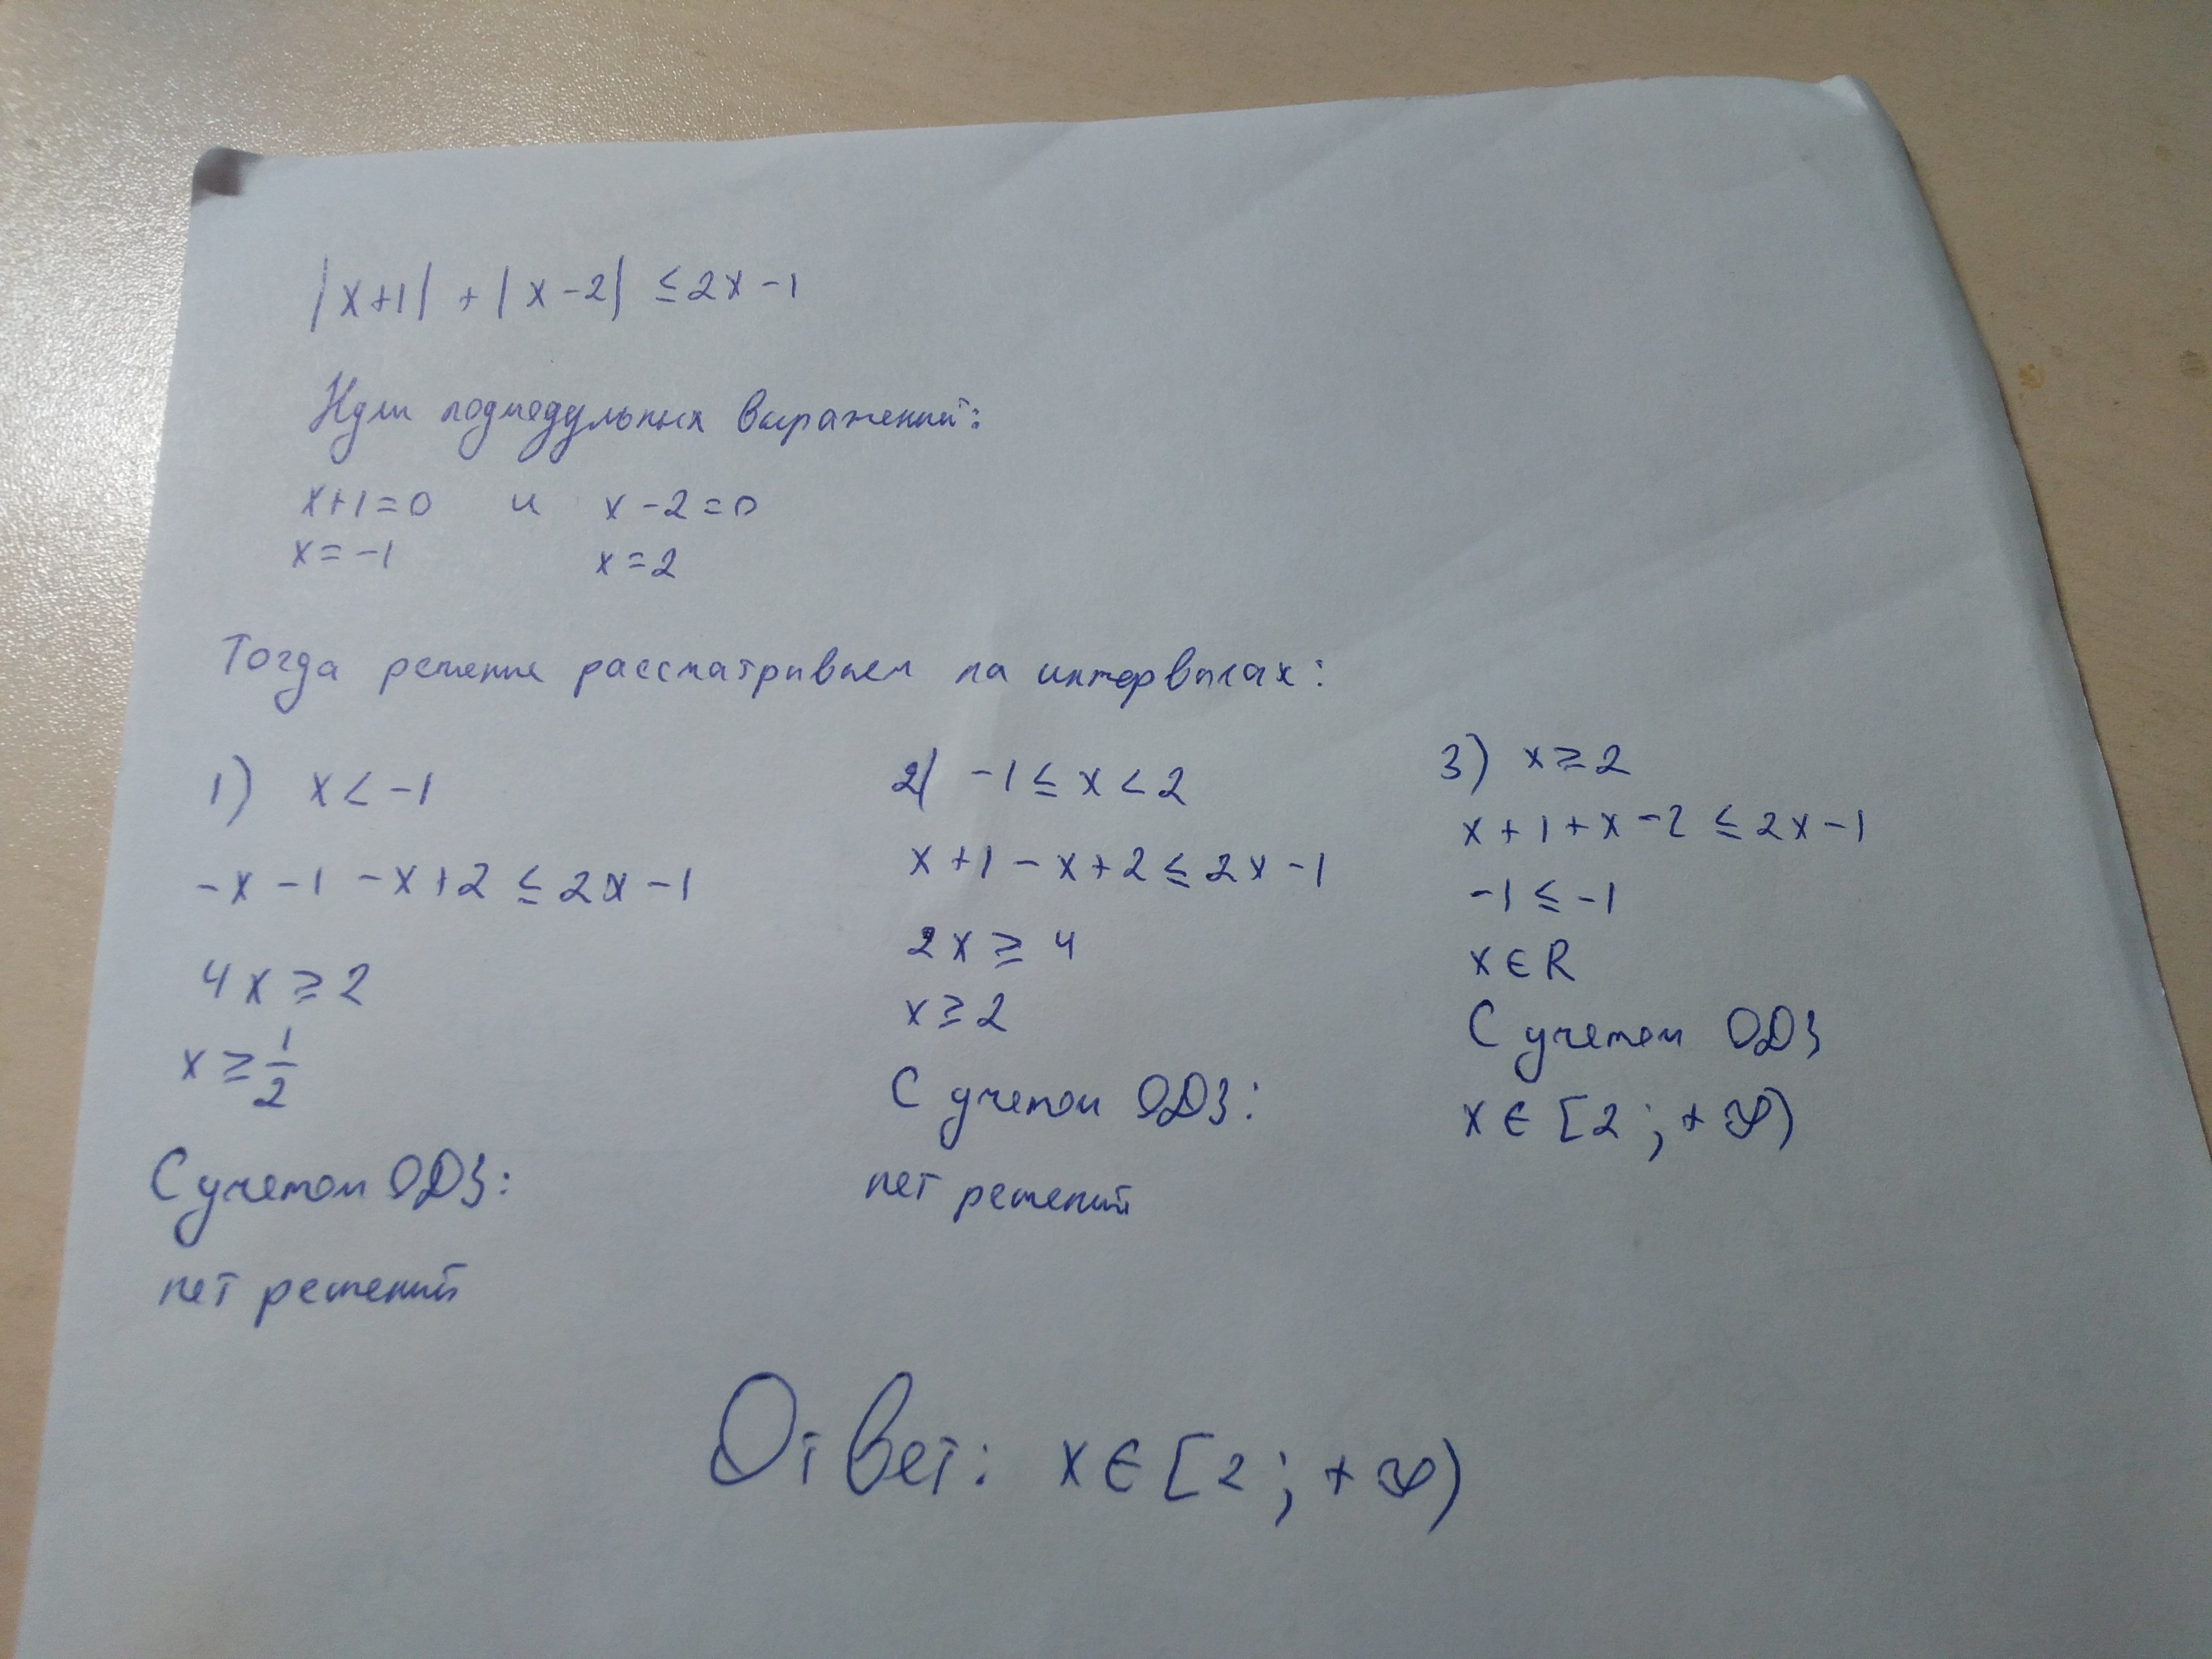 |x+1| + |x-2| ≤ 2x-1
Нули подмодульных выражений:
x+1=0 и x-2=0
x=-1 x=2
Тогда решение рассматриваем на интервалах:
1) x < -1
-x-1-x+2 ≤ 2x-1
4x ≥ 2
x ≥ 1/2
С учетом ОДЗ:
нет решений
2) -1 ≤ x < 2
x+1-x+2 ≤ 2x-1
2x ≥ 4
x ≥ 2
С учетом ОДЗ:
нет решений
3) x ≥ 2
x+1+x-2 ≤ 2x-1
-1 ≤ -1
x ∈ R
С учетом ОДЗ
x ∈ [2; +∞)
Ответ: x ∈ [2; +∞)